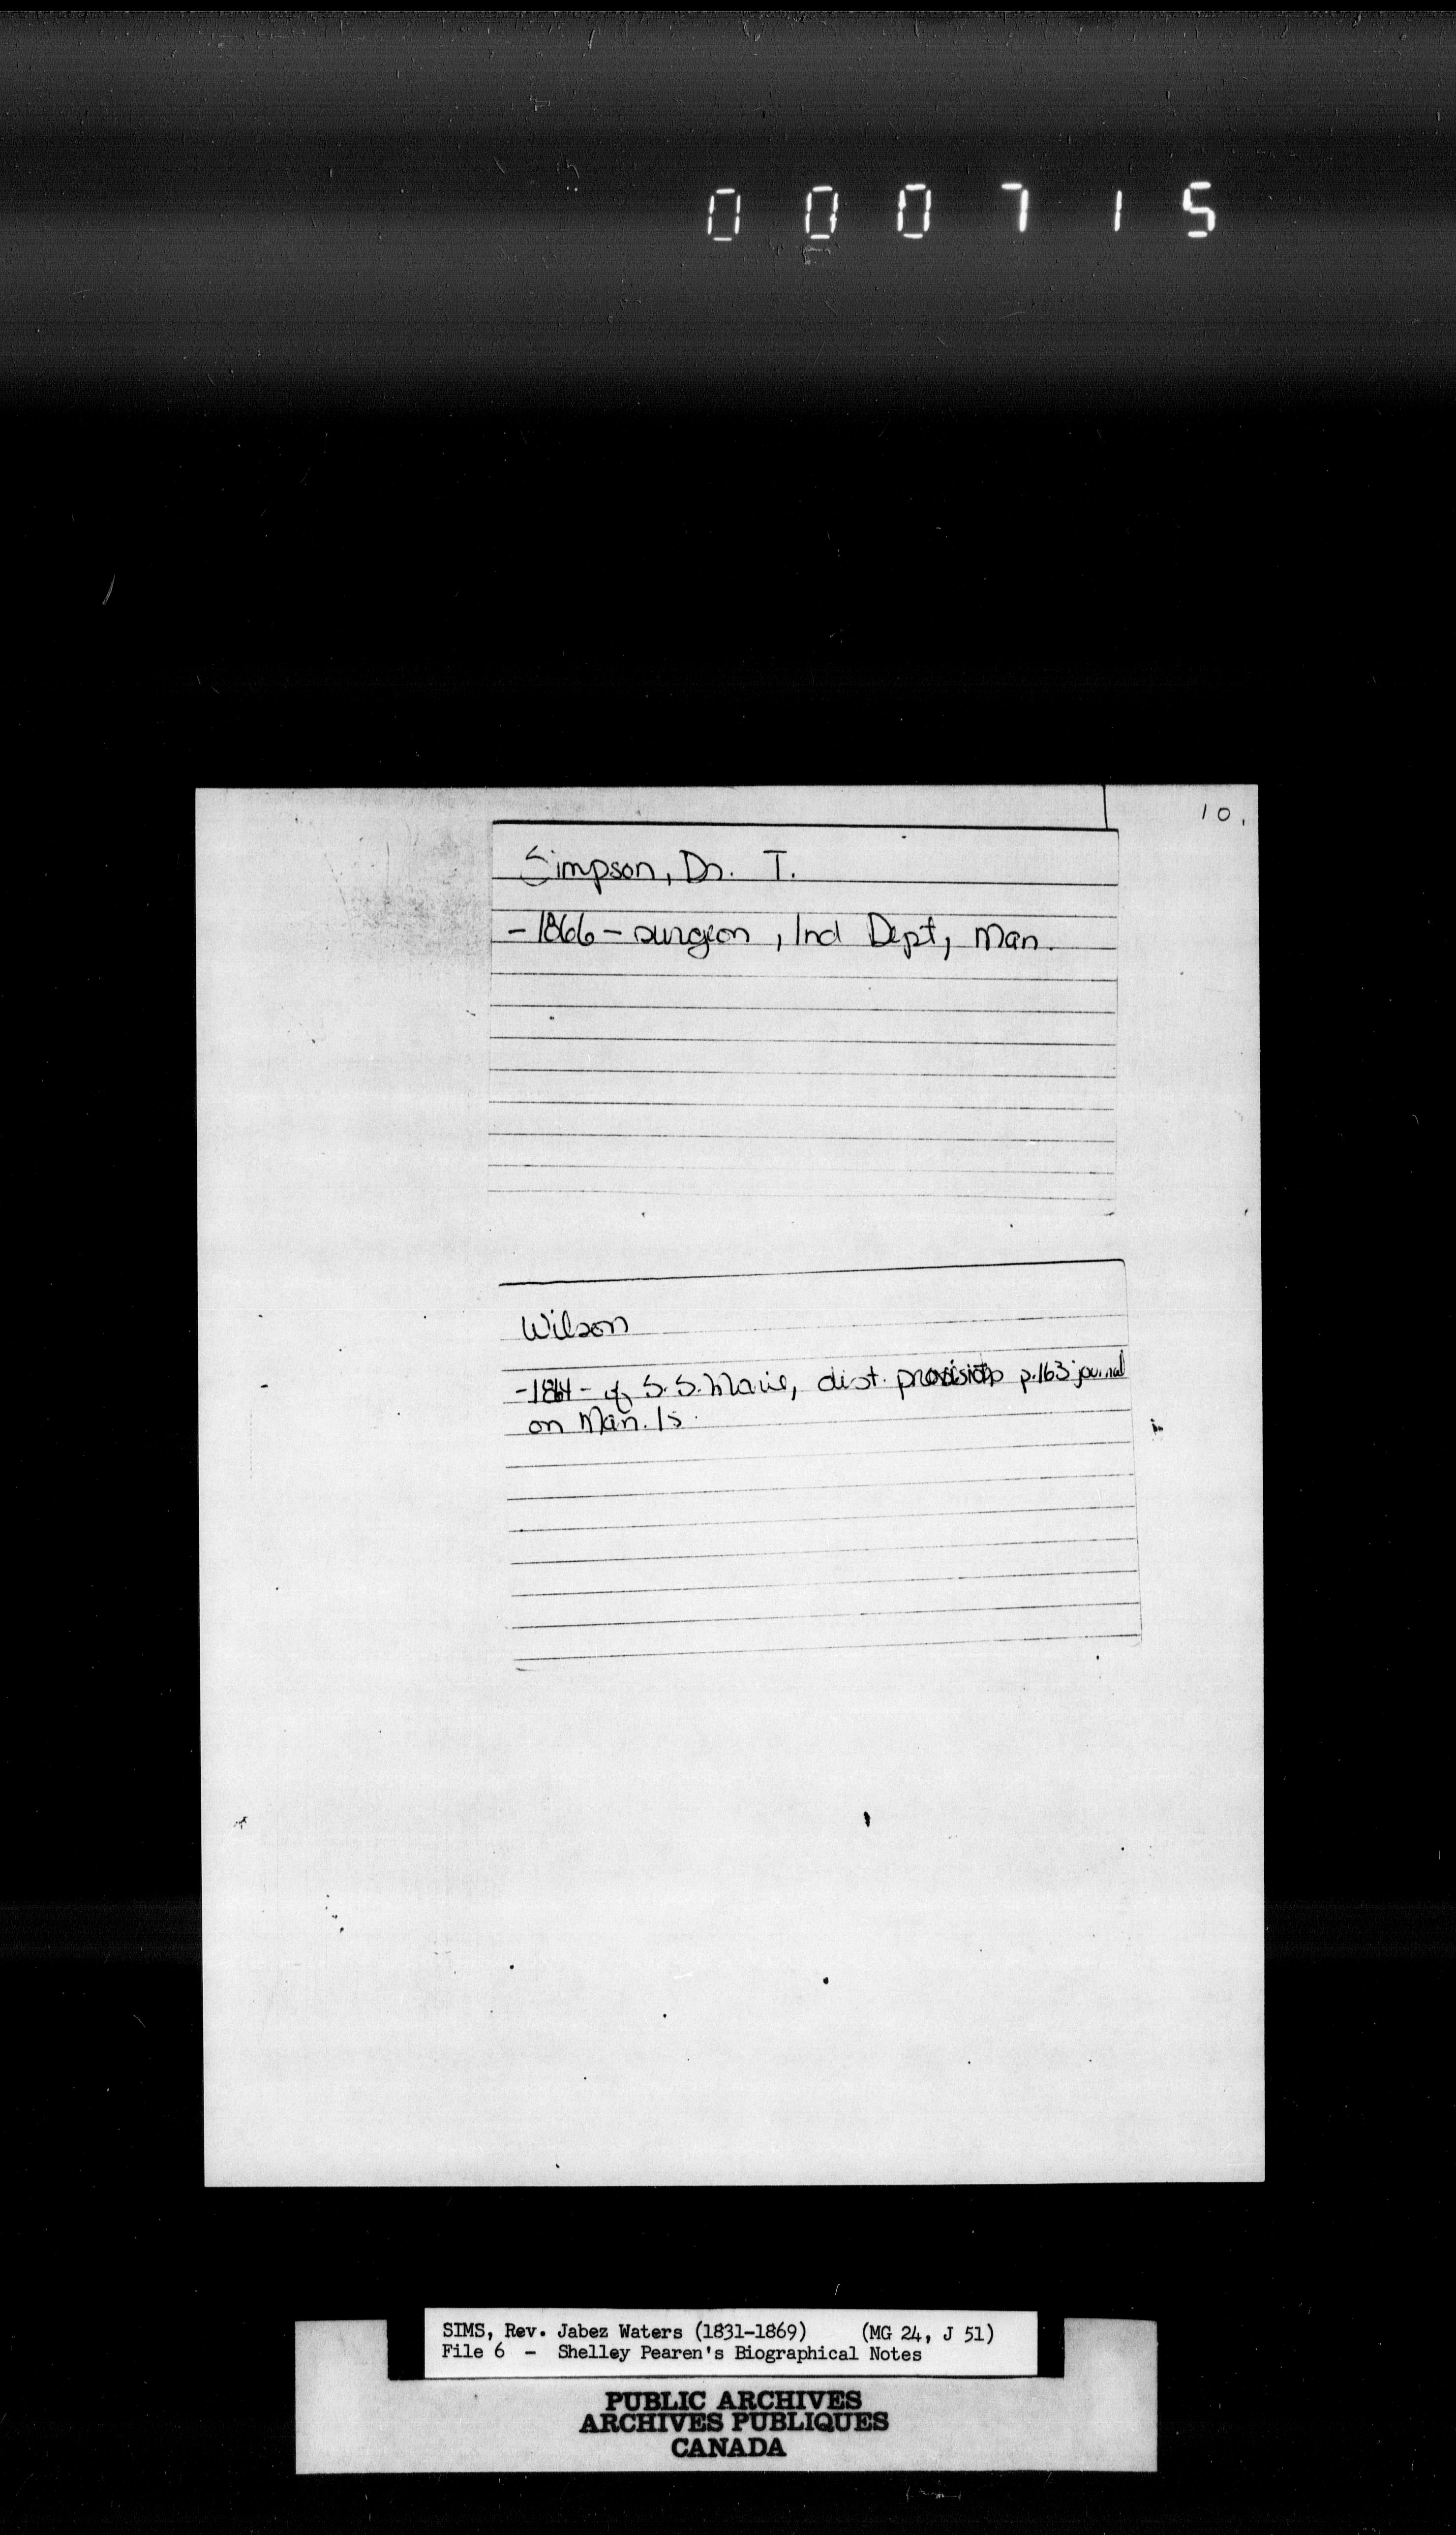 000715
10.
Simpson, Dr. T.
- 1866 - surgeon, Ind Dept, Man.
Wilson
- 1864 - of S.S. Marie, dist. provisions p.163 journal
on Man. Is.
SIMS, Rev. Jabez Waters (1831-1869) (MG 24, J 51)
File 6 - Shelley Pearen's Biographical Notes
PUBLIC ARCHIVES
ARCHIVES PUBLIQUES
CANADA